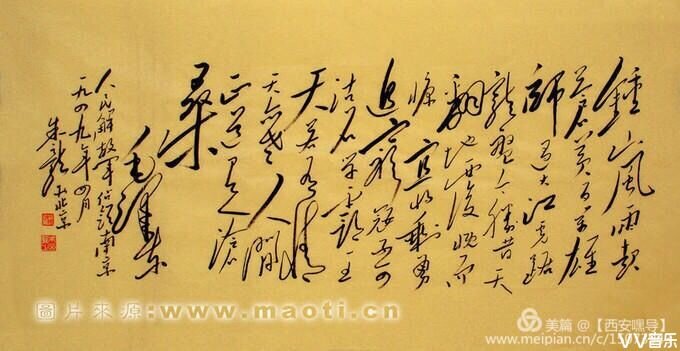 鍾山風雨起
蒼黄百万雄
師過大江虎踞
龍盘今勝昔天
翻地覆慨而
慷宜将剩勇
追窮寇不可
沽名学霸王
天若有情
天亦老人間
正道是滄
桑
毛澤东
人民解放军佔领南京
一九四九年四月
朱龙於北京
圖片來源:www.maoti.cn
美篇 @【西安嘿导】
www.meipian.cn/c/150
VV音乐